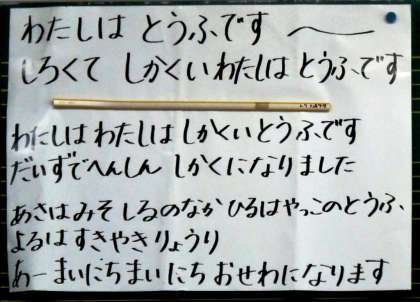 わたしは とうふです 〜
しろくて しかくい わたしは とうふです
わたしは わたしは しかくい とうふです
だいずでへんしん しかくになりました
あさは みそしるのなか ひるは やっこのとうふ、
よるは すきやきりょうり
あー まいにち まいにち おせわになります